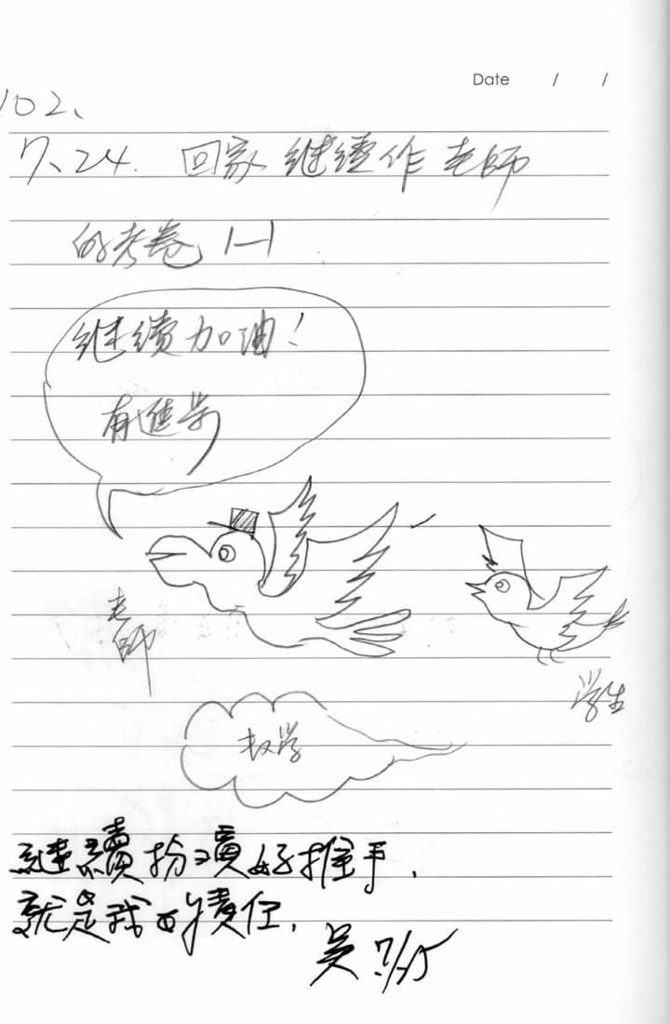 Date / /
102、
7、24. 回家 继續作老師
的考卷 1-1
继續加油！
有進步
老
師
学生
教学
繼續扮演好推手，
就是我的責任。
吳 7/25